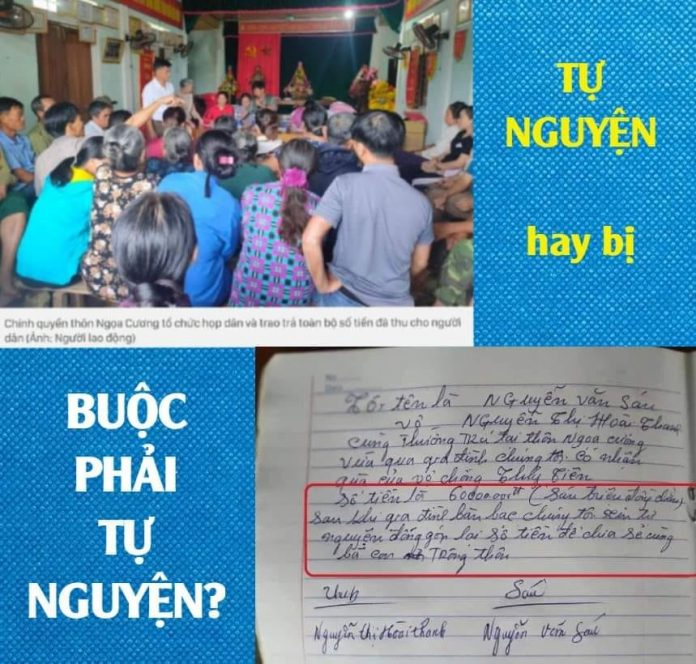 TỰ
NGUYỆN
hay bị
Chính quyền thôn Ngọa Cương tổ chức họp dân và trao trả toàn bộ số tiền đã thu cho người
dân (Ảnh: Người lao động)
BUỘC
PHẢI
TỰ
NGUYỆN?
Tôi tên là Nguyễn Văn Sáu
vợ Nguyễn Thị Hoài Thanh
cùng thường trú tại thôn Ngọa Cương
vừa qua gia đình chúng tôi có nhận
quà của vợ chồng Thủy Tiên
Số tiền là 6000000đ (Sáu triệu đồng chẵn)
Sau khi gia đình bàn bạc chúng tôi xin tự
nguyện đóng góp lại số tiền để chia sẻ cùng
bà con Trong thôn
Sáu
Nguyễn Thị Hoài Thanh Nguyễn Văn Sáu